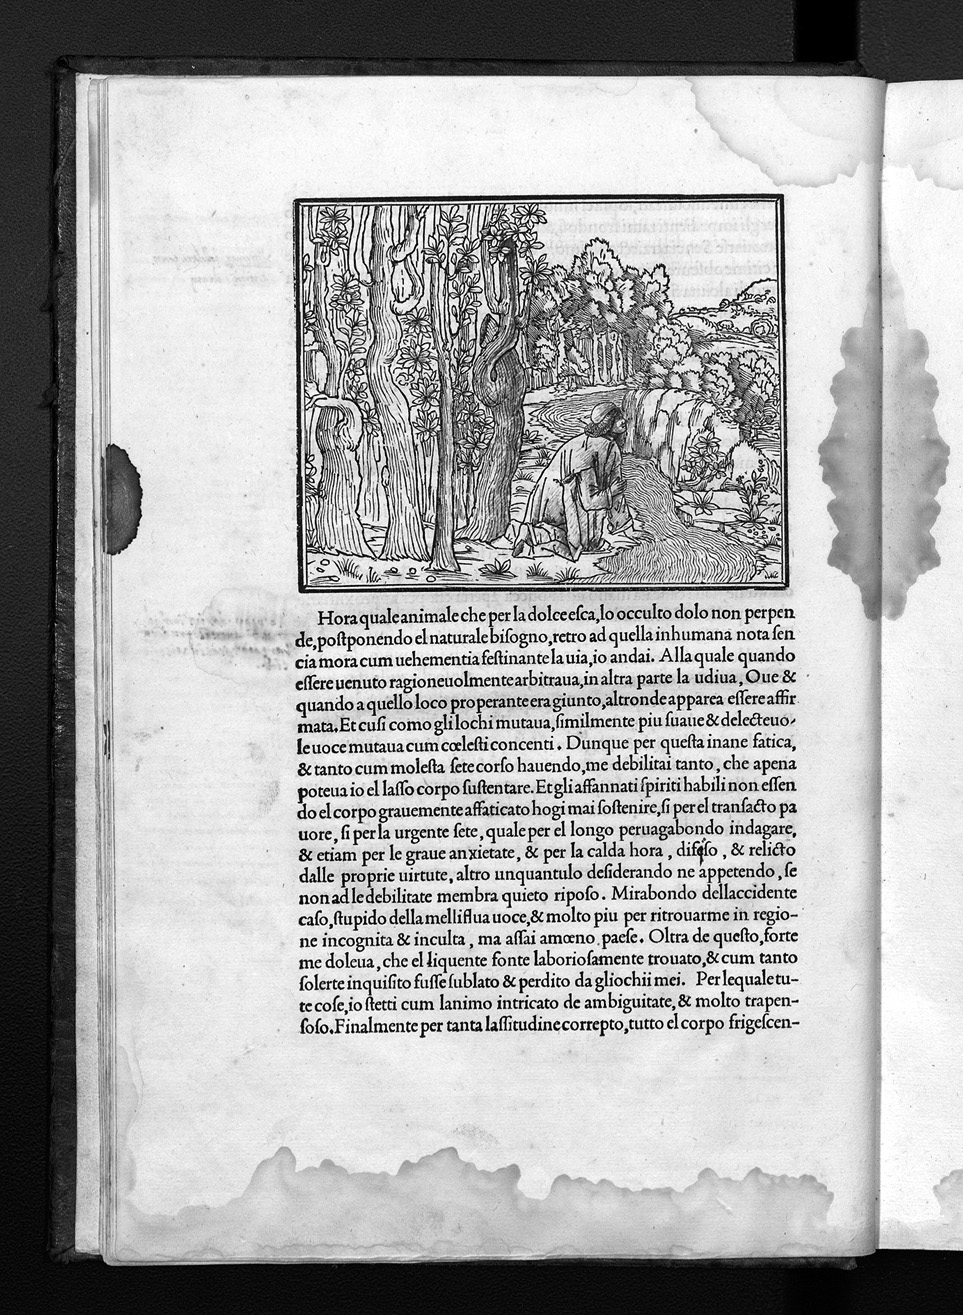 Hora quale animale che per la dolce esca, lo occulto dolo non perpen
de, postponendo el naturale bisogno, retro ad quella inhumana nota sen
cia mora cum uehementia festinante la uia, io andai. Alla quale quando
essere uenuto ragioneuolmente arbitraua, in altra parte la udiua, Oue &
quando a quello loco properante era giunto, altronde apparea essere affir
mata. Et cusi como gli lochi mutaua, similmente piu suaue & delecteuo-
le uoce mutaua cum cœlesti concenti. Dunque per questa inane fatica,
& tanto cum molesta sete corso hauendo, me debilitai tanto, che apena
poteua io el lasso corpo sustentare. Et gli affannati spiriti habili non essen
do el corpo grauemente affaticato hogi mai sostenire, si per el transacto pa
uore, si per la urgente sete, quale per el longo peruagabondo indagare,
& etiam per le graue anxietate, & per la calda hora, difeso, & relicto
dalle proprie uirtute, altro unquantulo desiderando ne appetendo, se
non ad le debilitate membra quieto riposo. Mirabondo dellaccidente
caso, stupido della melliflua uoce, & molto piu per ritrouarme in regio-
ne incognita & inculta, ma assai amœno paese. Oltra de questo, forte
me doleua, che el liquente fonte laboriosamente trouato, & cum tanto
solerte inquisito fusse sublato & perdito da gliochii mei. Per lequale tu-
te cose, io stetti cum lanimo intricato de ambiguitate, & molto trapen-
soso. Finalmente per tanta lassitudine correpto, tutto el corpo frigescen-